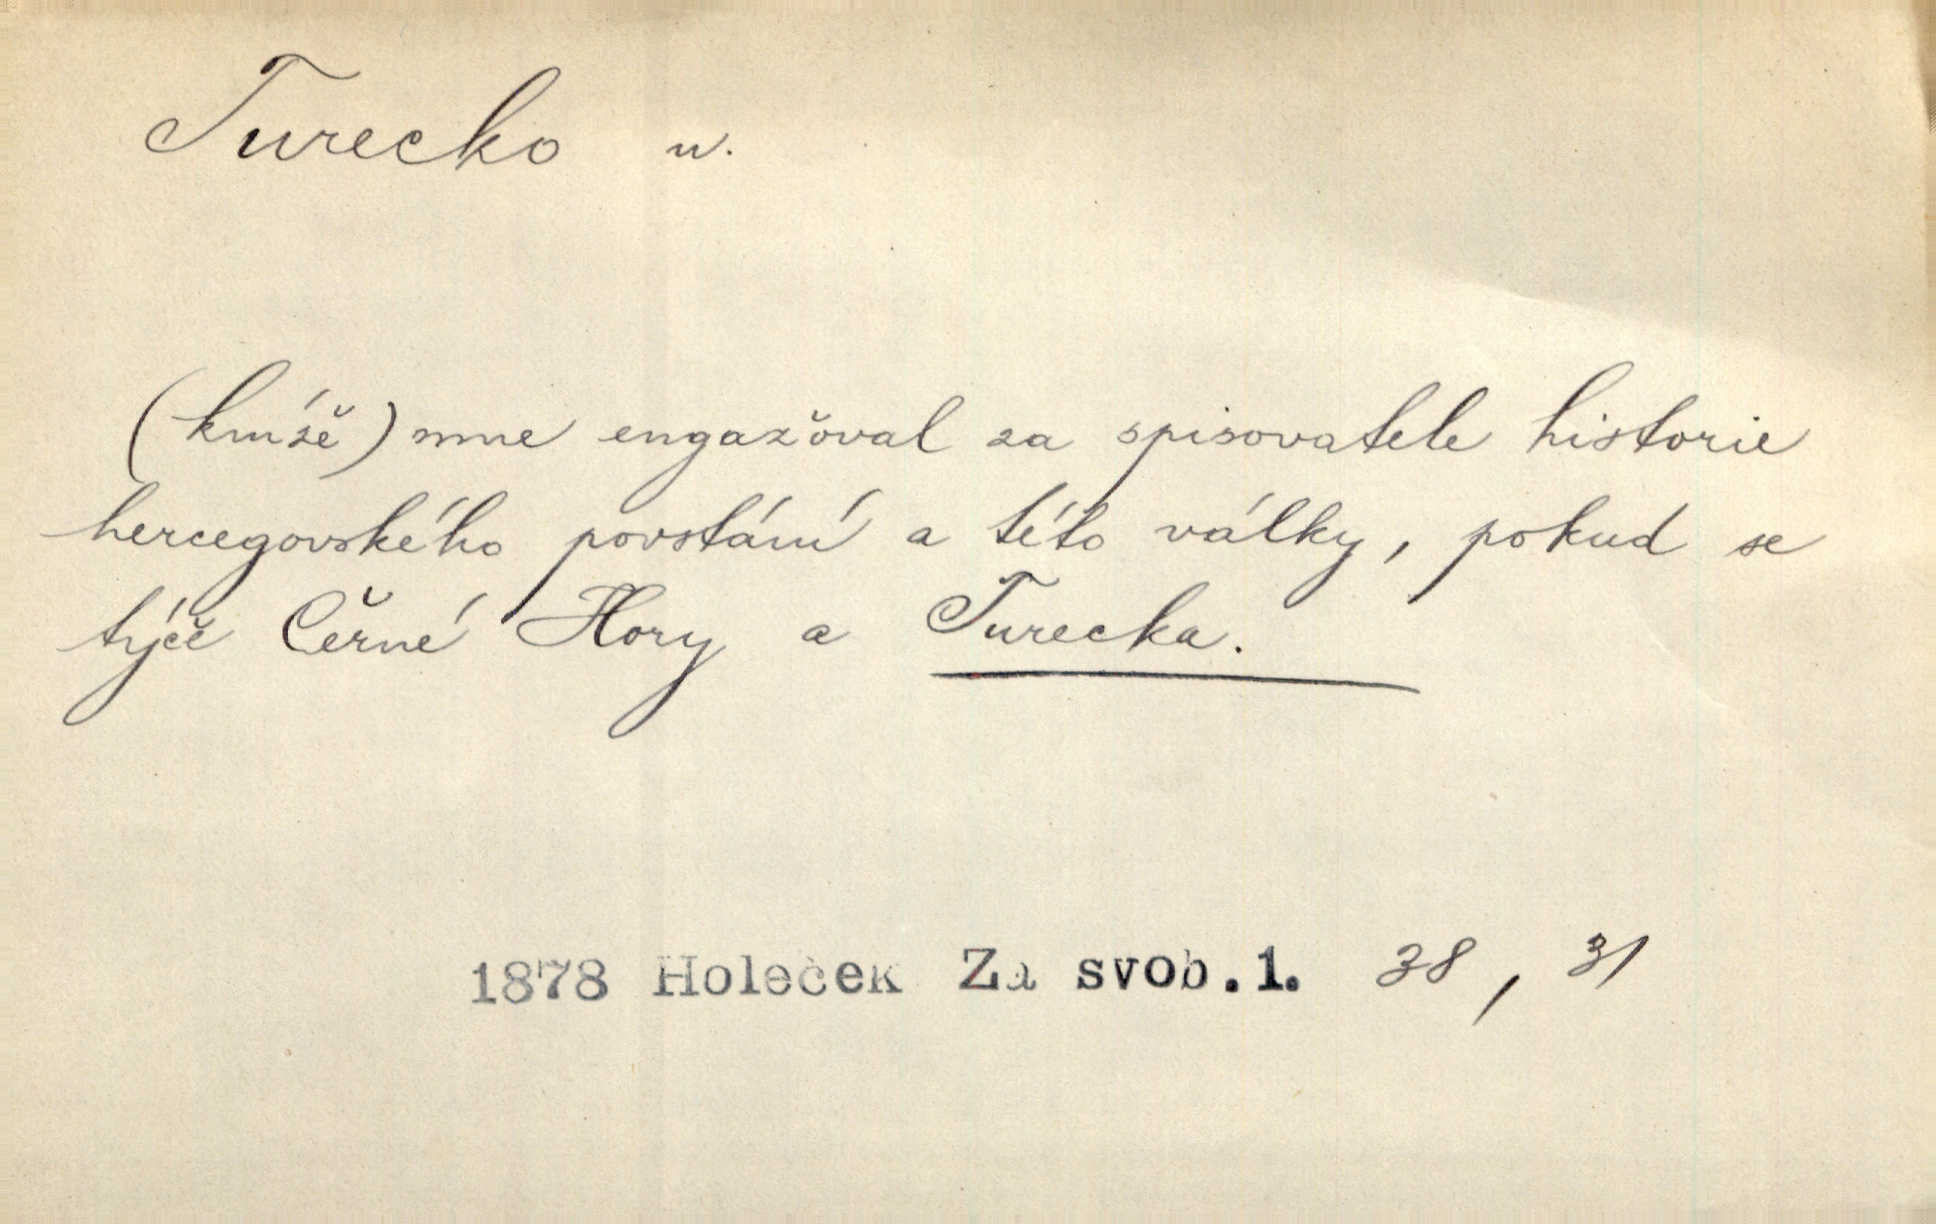 Turecko n.
(kníže) mne engažoval za spisovatele historie
hercegovského povstání a této války, pokud se
týče Černé Hory a Turecka.
1878 Holeček Za svob.1. 38, 31